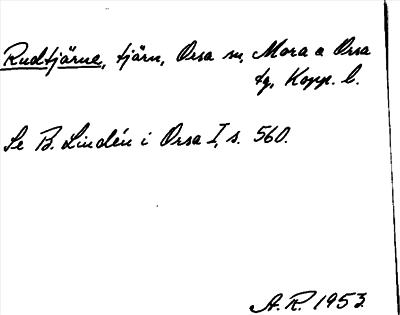 Rudtjärne, tjärn, Orsa sn, Mora o Orsa
tg, Kopp. l.
Se B. Lindén i Orsa I, s. 560.
A. R. 1953.